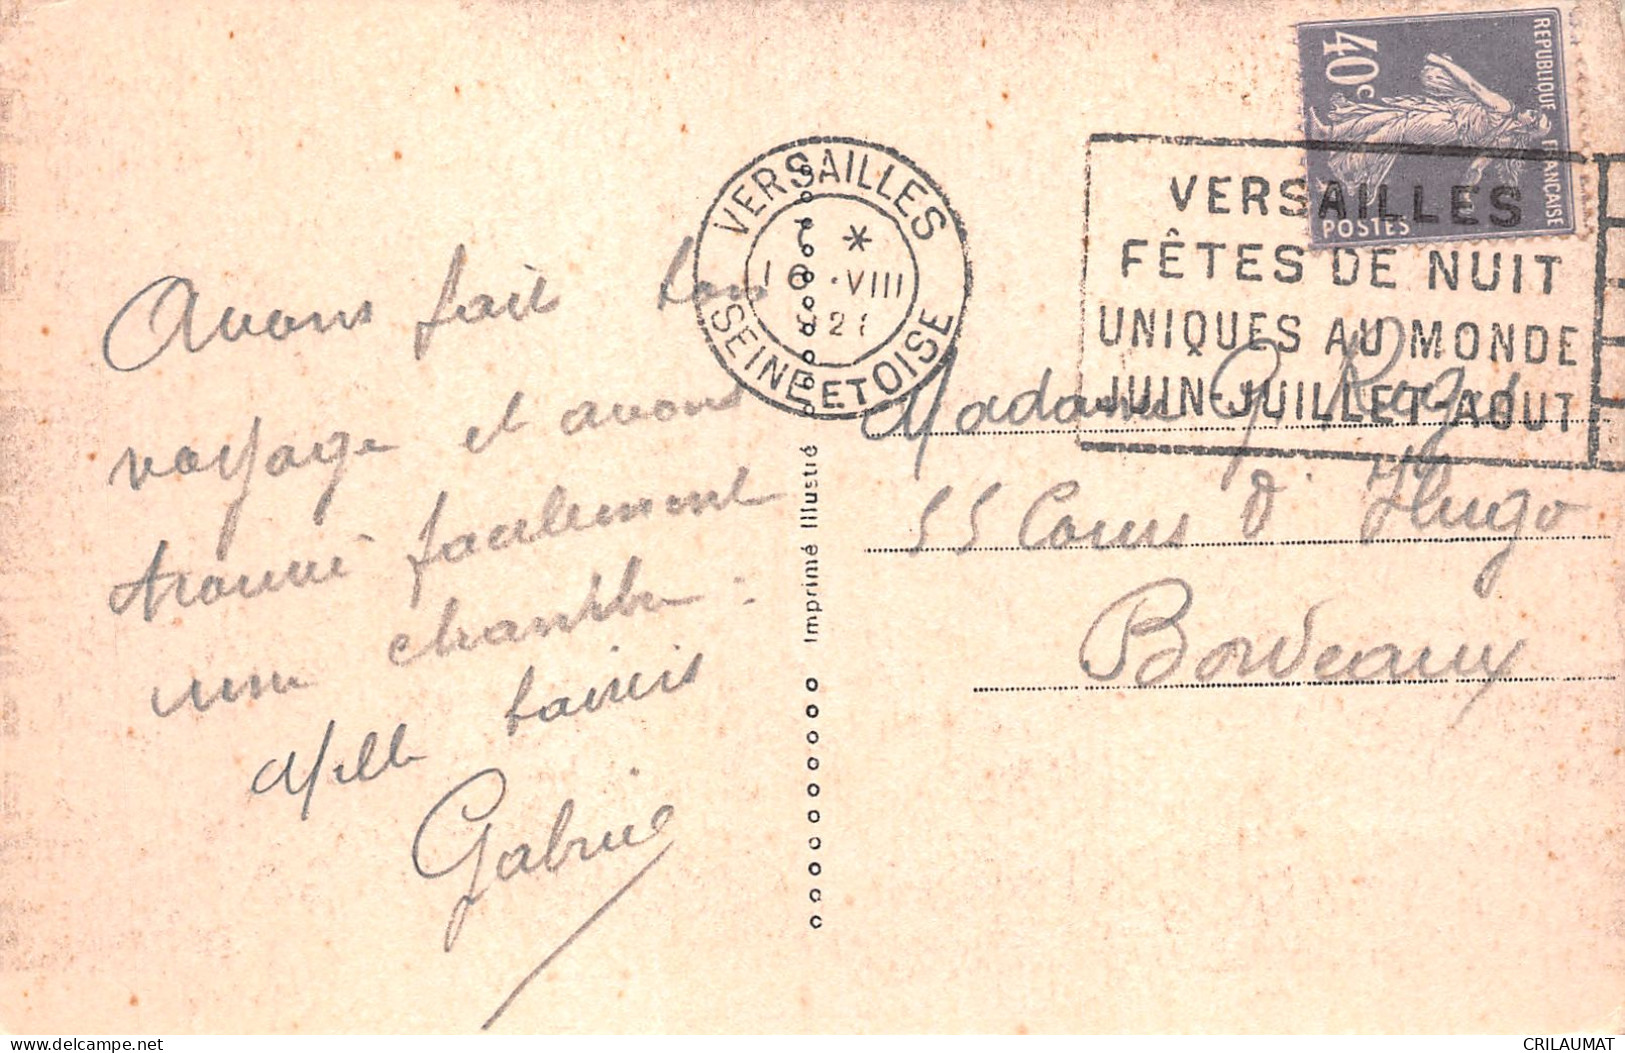 REPUBLIQUE FRANÇAISE
40c
POSTES
VERSAILLES
* VIII
SEINE ET OISE
VERSAILLES
FÊTES DE NUIT
UNIQUES AU MONDE
JUIN-JUILLET-AOUT
Avons fait bon
voyage et avons
trouvé facilement
une chambre.
Mille baisers
Gabriel
Imprimé Illustré
Madame
55 Cours V. Hugo
Bordeaux
CRILAUMAT